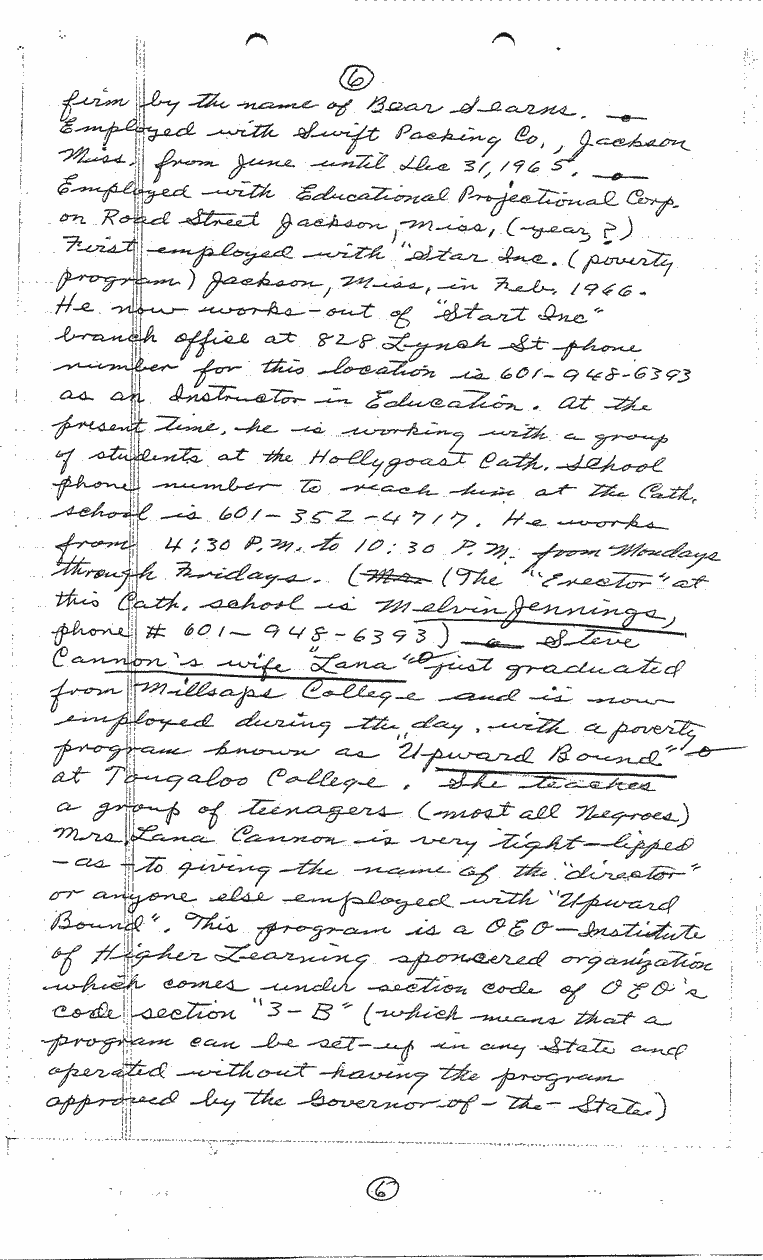 6
firm by the name of Bear Stearns. —
Employed with Swift Packing Co., Jackson
Miss. from June until Dec 31, 1965. —
Employed with Educational Projectional Corp.
on Road Street Jackson, Miss, (year?)
First employed with "Star Inc. (poverty
program) Jackson, Miss, in Feb. 1966.
He now works-out of "Start Inc"
branch office at 828 Lynch St phone
number for this location is 601-948-6393
as an Instructor in Education. At the
present time, he is working with a group
of students at the Hollygoast Cath. School
phone number to reach him at the Cath.
school is 601-352-4717. He works
from 4:30 P.M. to 10:30 P.M. from Mondays
through Fridays. (Mr. (The "Erector" at
this Cath. school is Melvin Jennings,
phone # 601-948-6393) — Steve
Cannon's wife "Lana" just graduated
from Millsaps College and is now
employed during the day, with a poverty
program known as "Upward Bound"
at Tougaloo College. She teaches
a group of teenagers (most all Negroes)
Mrs. Lana Cannon is very tight-lipped
-as-to giving the name of the "director"
or anyone else employed with "Upward
Bound". This program is a OEO-Institute
of Higher Learning sponcered organization
which comes under section code of OEO's
code section "3-B" (which means that a
program can be set-up in any State and
operated without having the program
approved by the Governor-of-the-State.)
6